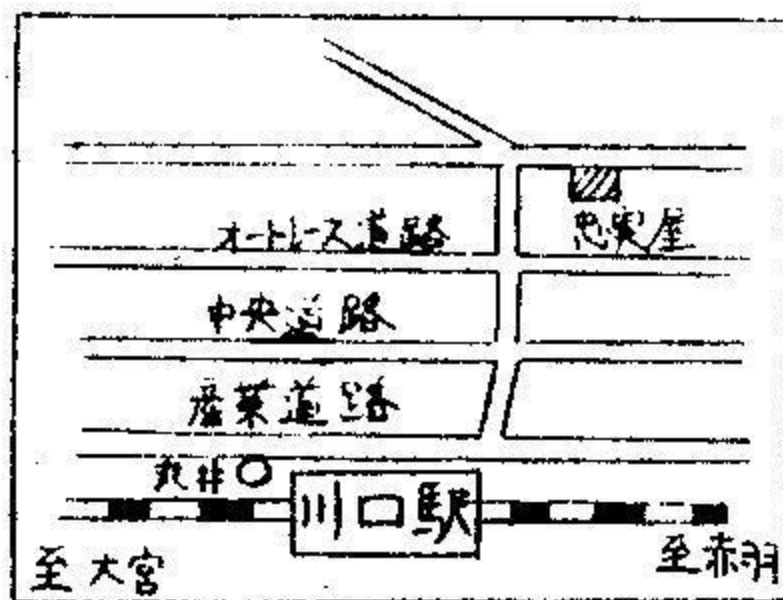 オートレース道路
忠実屋
中央道路
産業道路
丸井
川口駅
至大宮
至赤羽